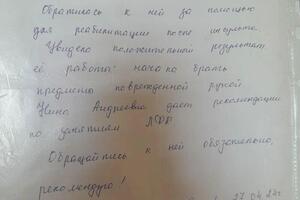 Обратилась к ней за помощью
для реабилитации после инсульта.
Увидела положительной результат
её работы: начала брать
предметы повреждённой рукой
Нина Андреевна даёт рекомендации
по занятиям ЛФК
Обращайтесь к ней обязательно,
рекомендую!
27.04.24г